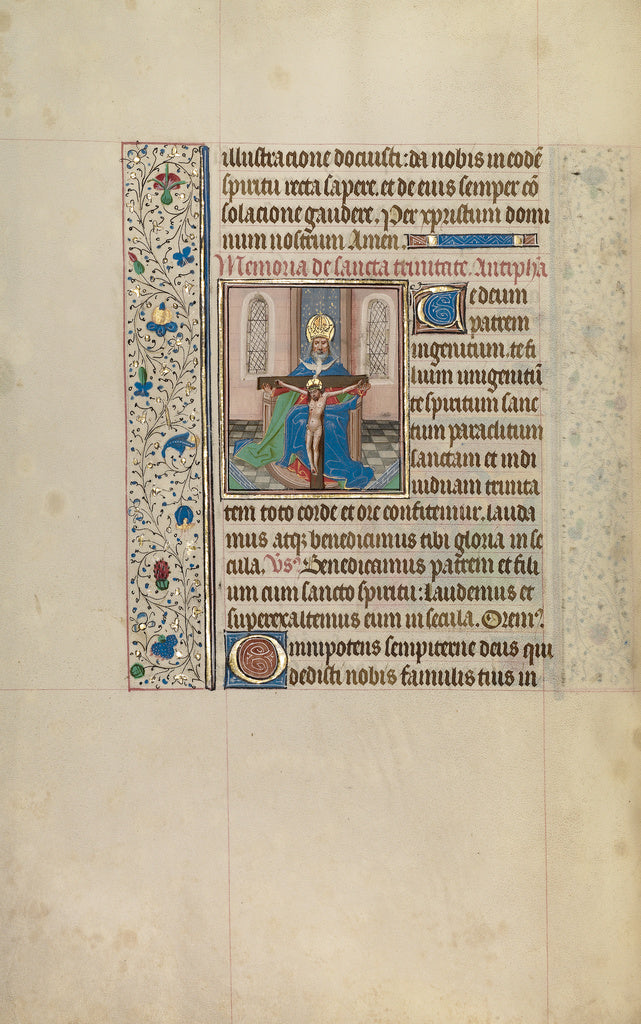 illustracione docuisti: da nobis in eodē
spiritu recta sapere. et de eius semper cō
solacione gaudere. Per xpristum domi
num nostrum Amen.
Memoria de sancta trinitate. Antipha
Te deum
patrem
ingenitum. te fi
lium unigenitū
te spiritum sanc
tum paraclitum
sanctam et indi
uiduam trinita
tem toto corde et ore confitemur. lauda
mus atq; benedicimus tibi gloria in se
cula. Vs. Benedicamus patrem et fili
um cum sancto spiritu: Laudemus et
superexaltemus eum in secula. Orem9.
Omnipotens sempiterne deus qui
dedisti nobis famulis tuis in